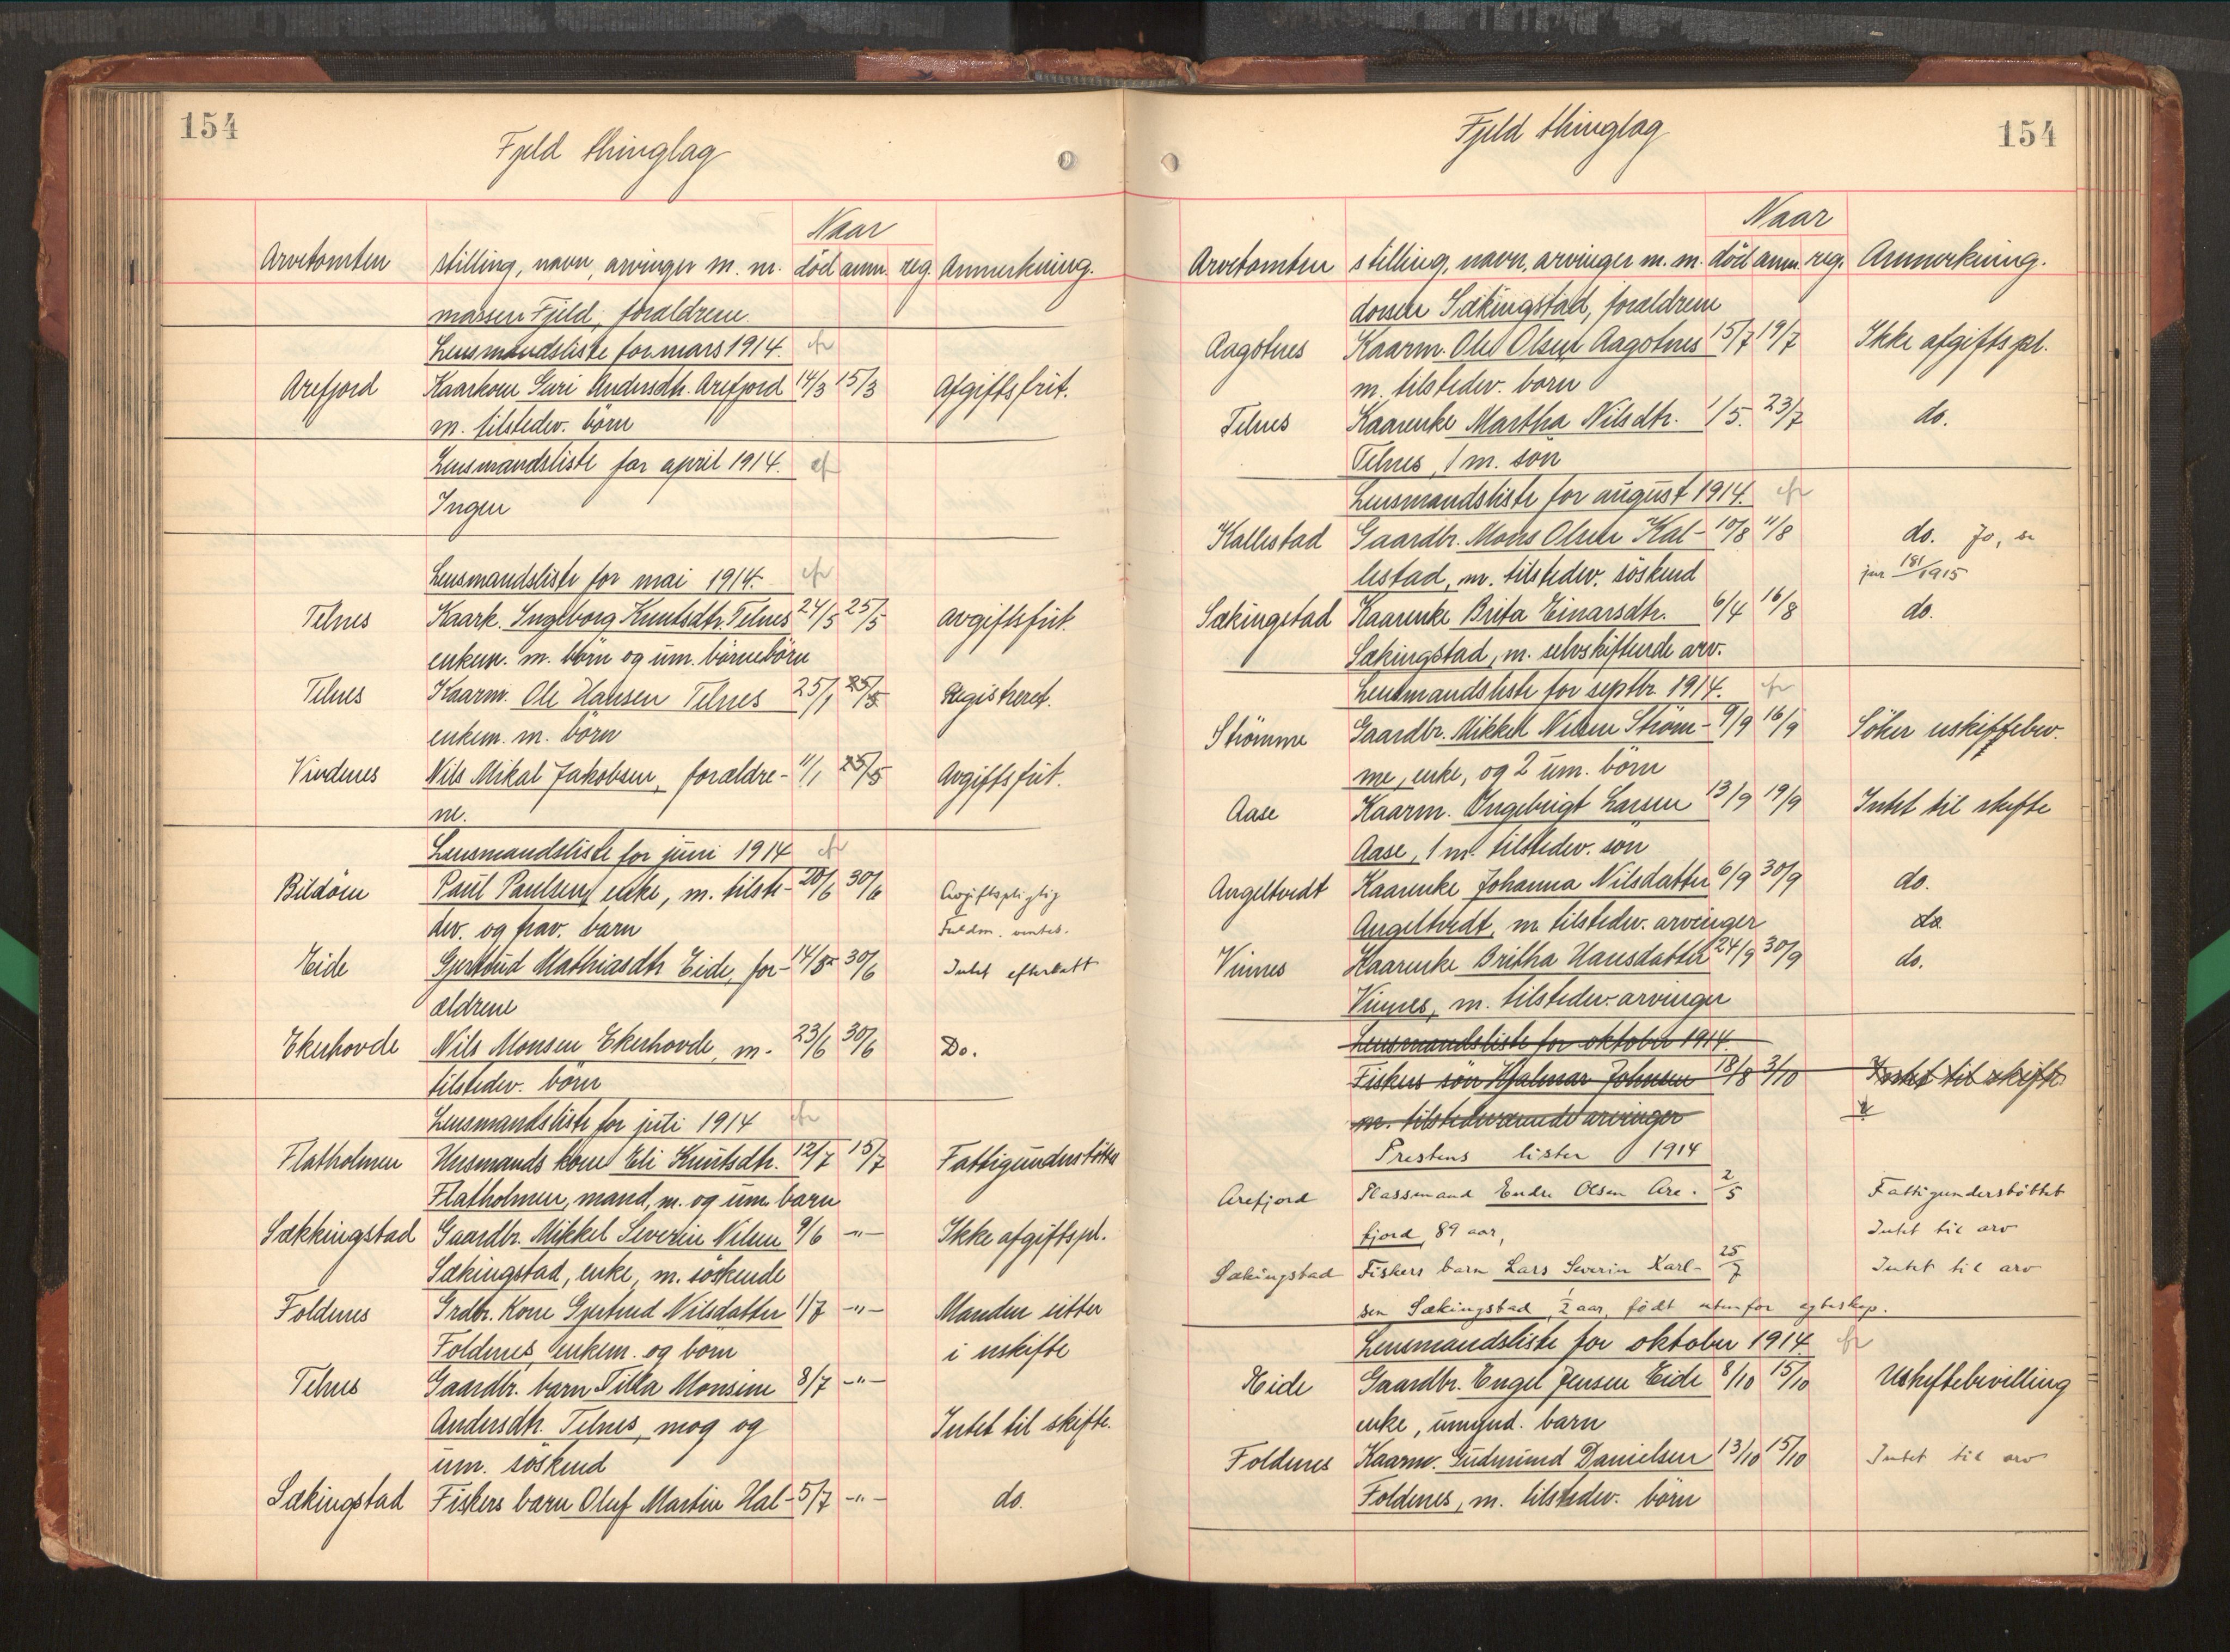 154
Fjeld thinglag
Naar
Arvetomten stilling, navn, arvinger m. m. död anm. reg. Anmerkning.
massen Fjeld, forældrene
Lensmandsliste for mars 1914. efr
Arefjord Kaarkone Guri Andersdtr. Arefjord 14/3 15/3 Afgiftsfrit.
m. tilstedev. börn
Lensmandsliste for april 1914. ef
Ingen
Lensmandsliste for mai 1914. efr
Telnes Kaark. Ingeborg Knutsdtr. Telnes 24/5 25/5 Avgiftsfrit.
enkem. m. börn og um. börnebörn
Telnes Kaarm. Ole Hansen Telnes 25/1 25/5 Registreret.
enkem. m. börn
Vindenes Nils Mikal Jakobsen, forældre- 11/1 25/5 Avgiftsfrit.
ne.
Lensmandsliste for juni 1914 efr
Bildöen Paul Paulsen, enke, m. tilste- 20/6 30/6 Avgiftspligtig
dev. og frav. barn Fuldm. ventes.
Eide Gjertrud Mathiasdtr Eide, for- 14/5 30/6 Intet efterlatt
ældrene
Ekerhovde Nils Monsen Ekerhovde, m. 23/6 30/6 Do.
tilstedev. börn
Lensmandsliste for juli 1914 efr
Flatholmen Husmands kone Eli Knutsdtr. 12/7 15/7 Fattigunderstöttet
Flatholmen, mand, m. og um. barn
Sækkingstad Gaardbr. Mikkel Severin Nilsen 9/6 -"- Ikke afgiftspl.
Sækingstad, enke, m. söskende
Foldenes Grdbr. Kone Gjertrud Nilsdatter 1/7 -"- Manden sitter
Foldenes, enkem. og börn i uskifte
Telnes Gaardbr. barn Tilla Monsine 8/7 -"-
Andersdtr. Telnes, mog og Intet til skifte.
um. söskend
Sækingstad Fiskers barn Oluf Martin Hal- 5/7 -"- do.
154
Fjeld thinglag
Naar
Arvetomten stilling, navn, arvinger m. m. död anm. reg. Anmerkning.
dorsen Sækingstad, forældrene
Aagotnes Kaarm. Ole Olsen Aagotnes 15/7 19/7 Ikke afgiftspl.
m. tilstedev. born
Telnes Kaarenke Martha Nilsdtr. 1/5. 23/7 do.
Telnes, 1 m. sön
Lensmandsliste for august 1914. efr
Kallestad Gaardbr. Mons Olsen Kal- 10/8 11/8 do. Jo, se
lestad, m. tilstedev. söskend jnr 181/1915
Sækingstad Kaarenke Brita Einarsdtr. 6/4 16/8 do.
Sækingstad, m. selvskiftende arv.
Lensmandsliste for septbr. 1914. efr
Strömme Gaardbr. Mikkel Nilsen Ström- 9/9 16/9 Söker uskiftebev.
me, enke, og 2 um. börn
Aase Kaarm. Ingebrigt Larsen 13/9 19/9 Intet til skifte
Aase, 1 m. tilstedev. sön
Angeltvedt Kaarenke Johanna Nilsdatter 6/9 30/9 do.
Angeltvedt, m. tilstedev. arvinger do
Vinnes Kaarenke Britha Hansdatter 24/9 30/9 do.
Vinnes, m. tilstedev. arvinger
Lensmandsliste for oktober 1914.
Fiskers sön Hjalmar Johnsen 18/8 3/10 Intet til skifte
m. tilstedeværende arvinger
Prestens lister 1914
Arefjord Plassmand Endre Olsen Are- 2/5 Fattigunderstöttet
fjord, 89 aar, Intet til arv
Sækingstad Fiskers barn Lars Severin Karl- 25/7 Intet til arv
sen Sækingstad, 1/2 aar, födt utenfor egteskap.
Lensmandsliste for oktober 1914 efr
Eide Gaardbr. Engel Jensen Eide 8/10 15/10 Uskiftebevilling
enke, umynd. barn
Foldenes Kaarm. Gudmund Danielsen 13/10 15/10 Intet til arv
Foldenes, m. tilstedev. börn